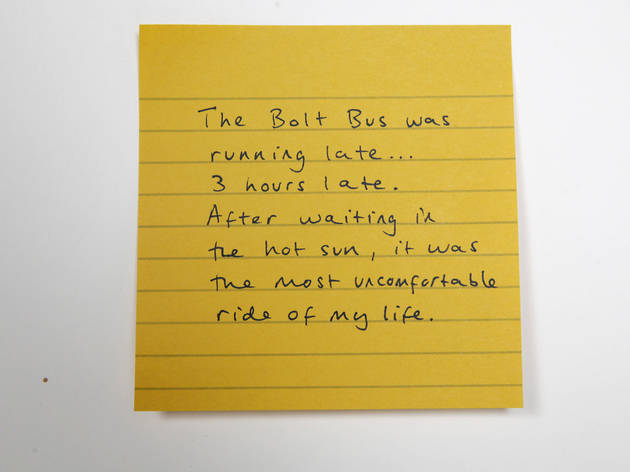 The Bolt Bus was
running late...
3 hours late.
After waiting in
the hot sun, it was
the most uncomfortable
ride of my life.